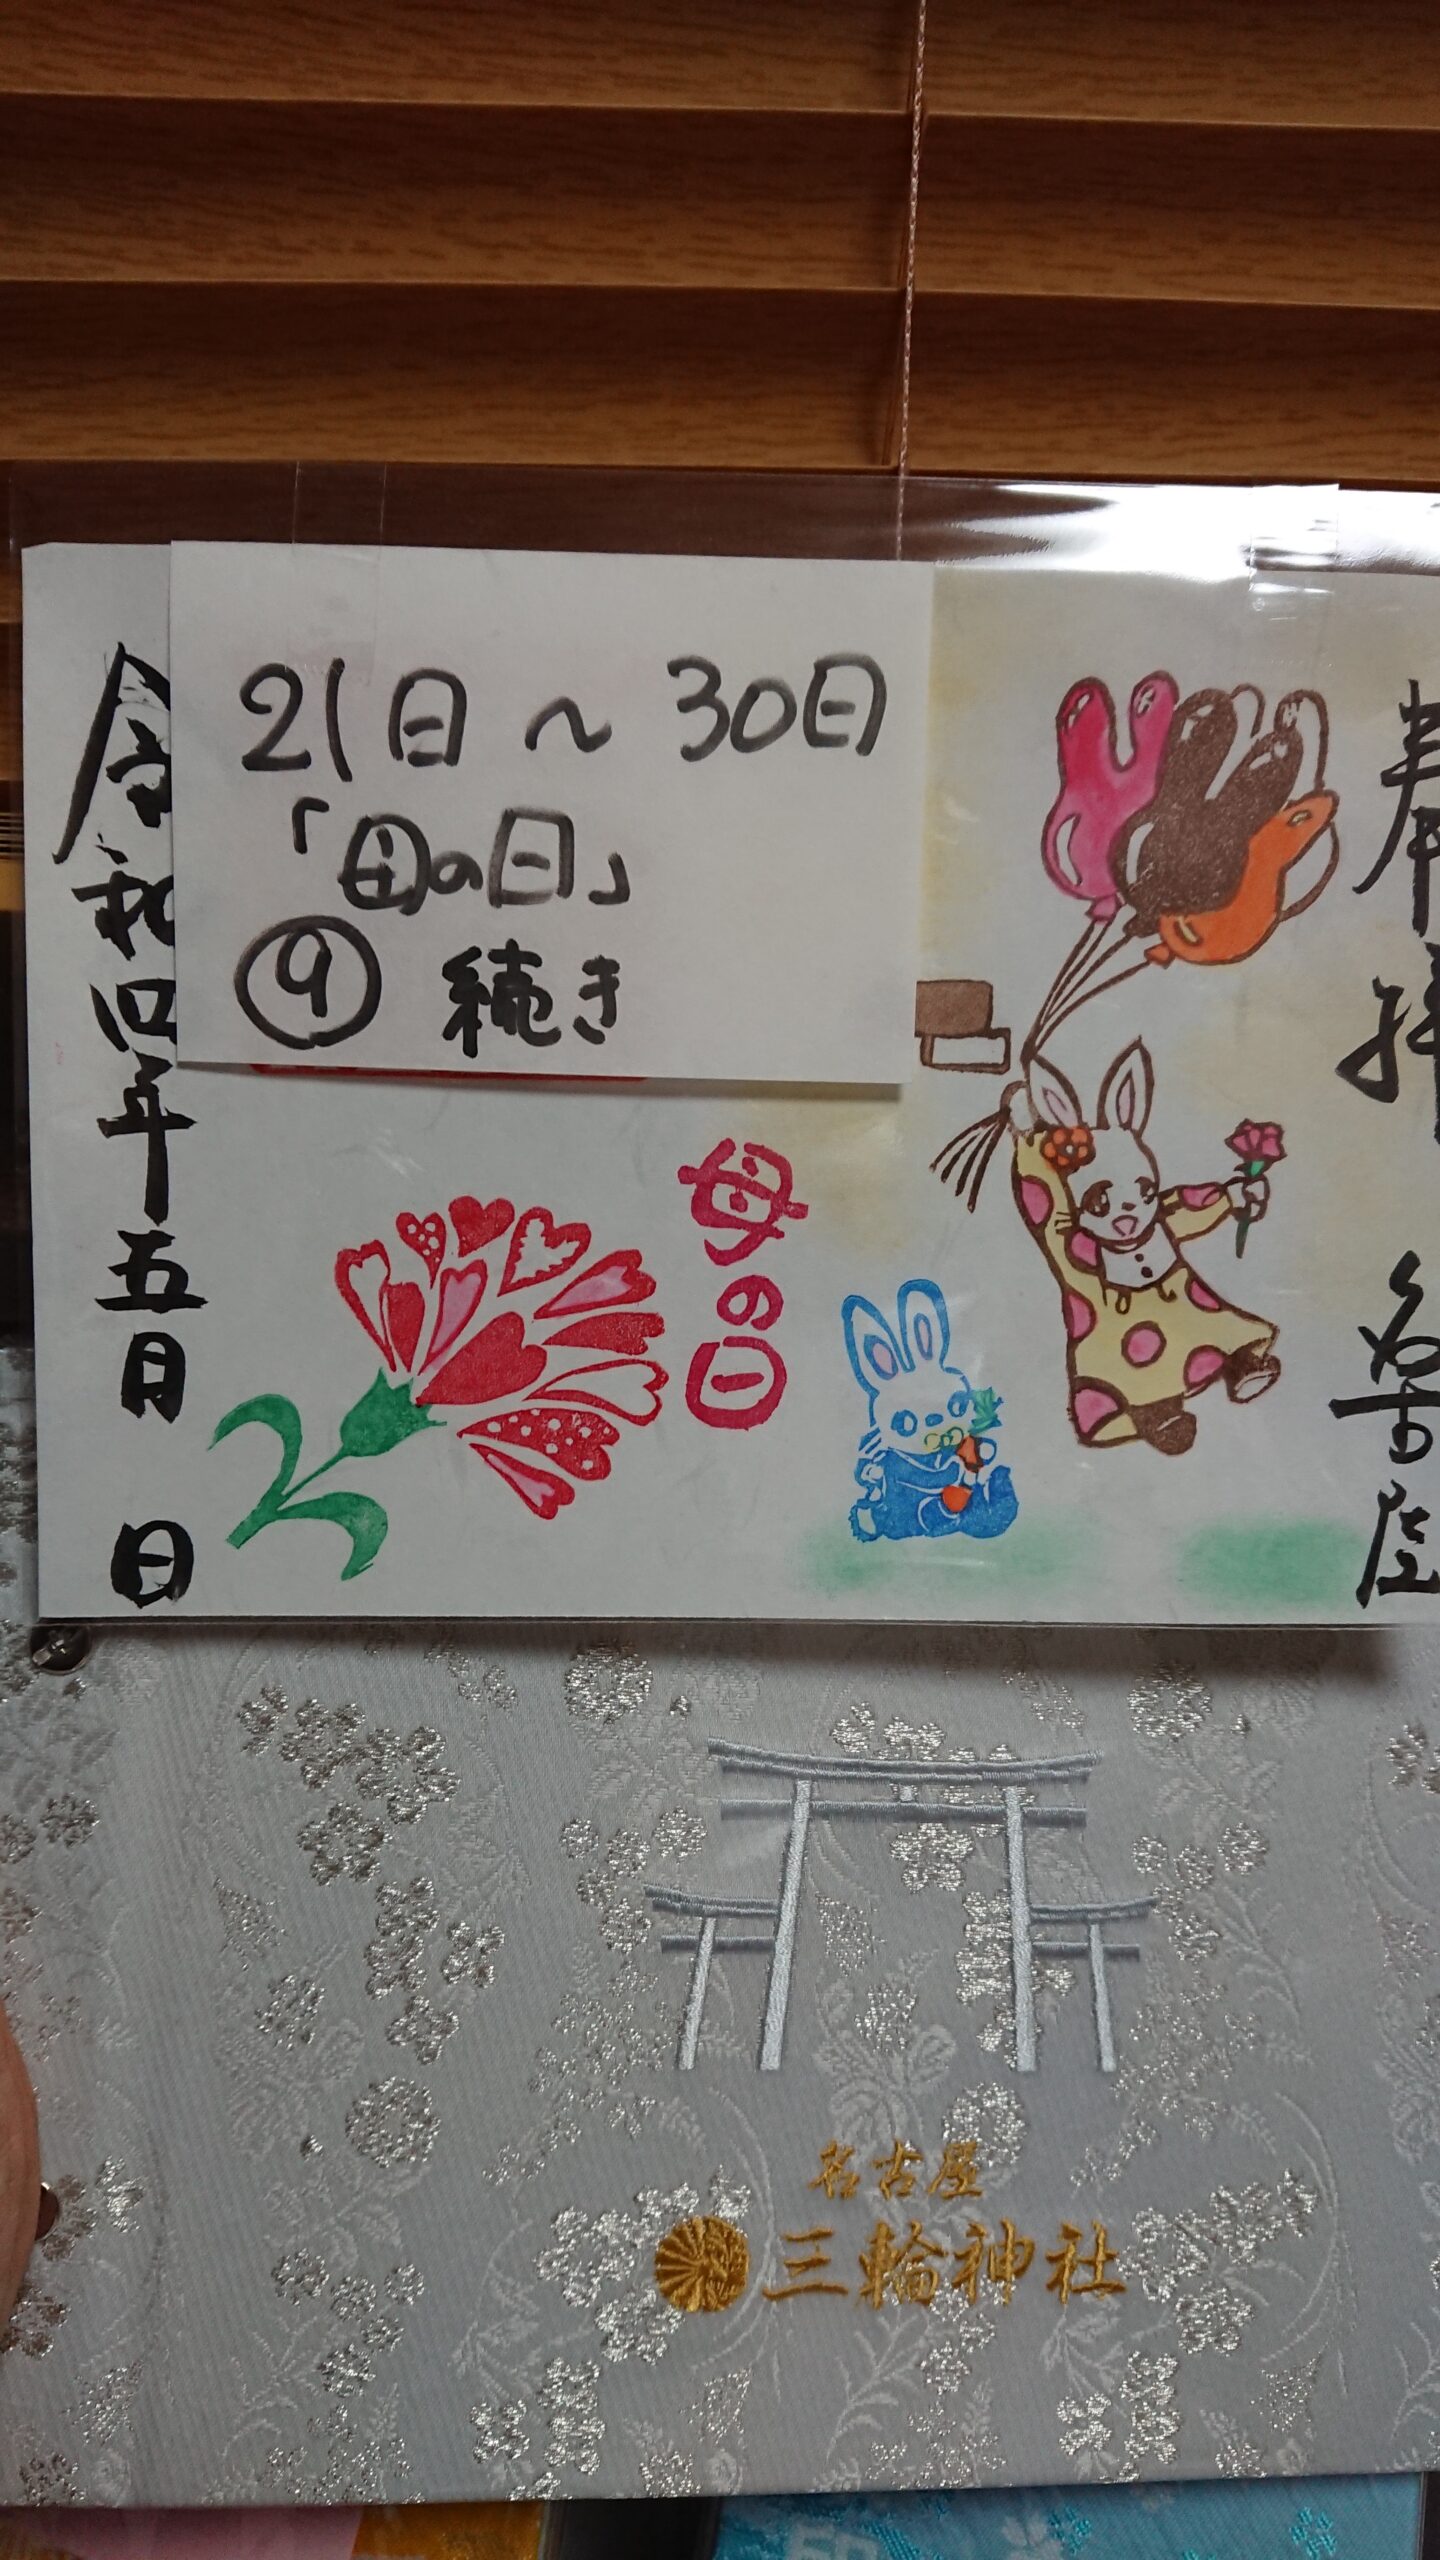 奉拝
名古屋
21日～30日
「母の日」
⑨ 続き
母の日
令和四年五月 日
名古屋
三輪神社